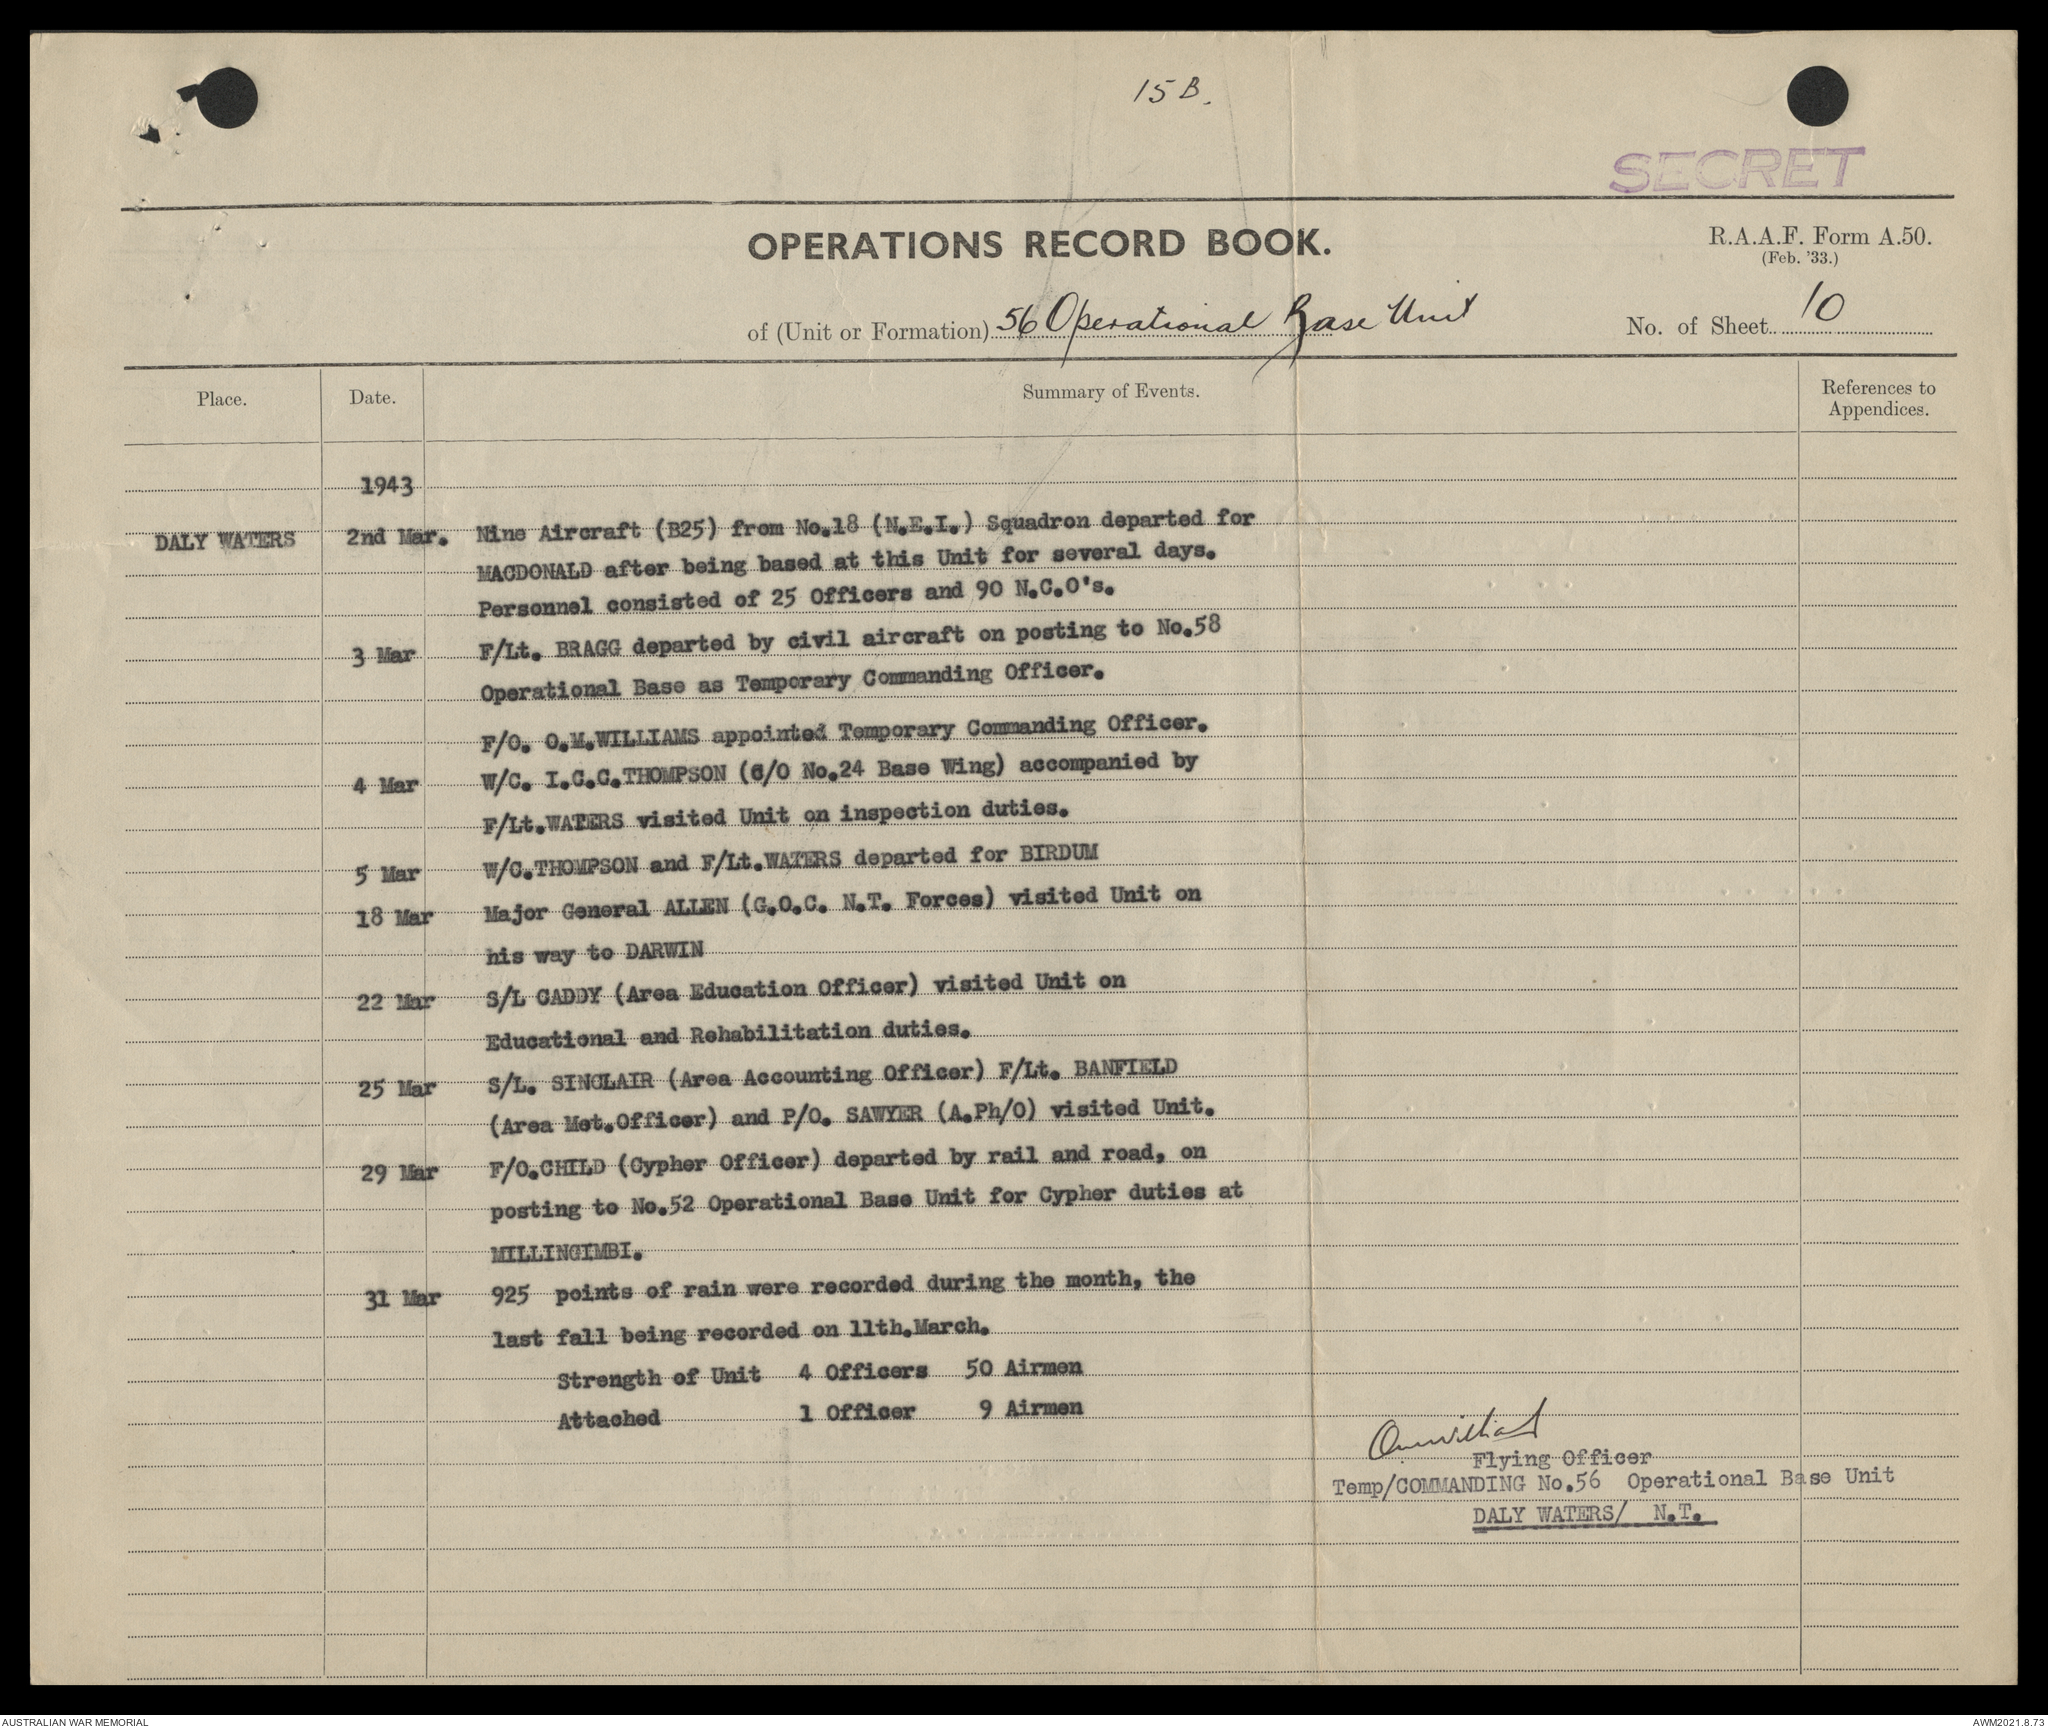 15B.
SECRET
OPERATIONS RECORD BOOK.
R.A.A.F. Form A.50.
(Feb. '33.)
of (Unit or Formation) 56 Operational Base Unit
No. of Sheet 10
Place. Date. Summary of Events. References to
Appendices.
1943
DALY WATERS 2nd Mar. Nine Aircraft (B25) from No.18 (N.E.I.) Squadron departed for
MACDONALD after being based at this Unit for several days.
Personnel consisted of 25 Officers and 90 N.C.O's.
3 Mar F/Lt. BRAGG departed by civil aircraft on posting to No.58
Operational Base as Temporary Commanding Officer.
F/O. O.M.WILLIAMS appointed Temporary Commanding Officer.
4 Mar W/C. I.C.C.THOMPSON (C/O No.24 Base Wing) accompanied by
F/Lt.WATERS visited Unit on inspection duties.
5 Mar W/C.THOMPSON and F/Lt.WATERS departed for BIRDUM
18 Mar Major General ALLEN (G.O.C. N.T. Forces) visited Unit on
his way to DARWIN
22 Mar S/L CADDY (Area Education Officer) visited Unit on
Educational and Rehabilitation duties.
25 Mar S/L. SINCLAIR (Area Accounting Officer) F/Lt. BANFIELD
(Area Met.Officer) and P/O. SAWYER (A.Ph/O) visited Unit.
29 Mar F/O.CHILD (Cypher Officer) departed by rail and road, on
posting to No.52 Operational Base Unit for Cypher duties at
MILLINGIMBI.
31 Mar 925 points of rain were recorded during the month, the
last fall being recorded on 11th.March.
Strength of Unit 4 Officers 50 Airmen
Attached 1 Officer 9 Airmen
Flying Officer
Temp/COMMANDING No.56 Operational Base Unit
DALY WATERS/ N.T.
AUSTRALIAN WAR MEMORIAL
AWM2021.8.73